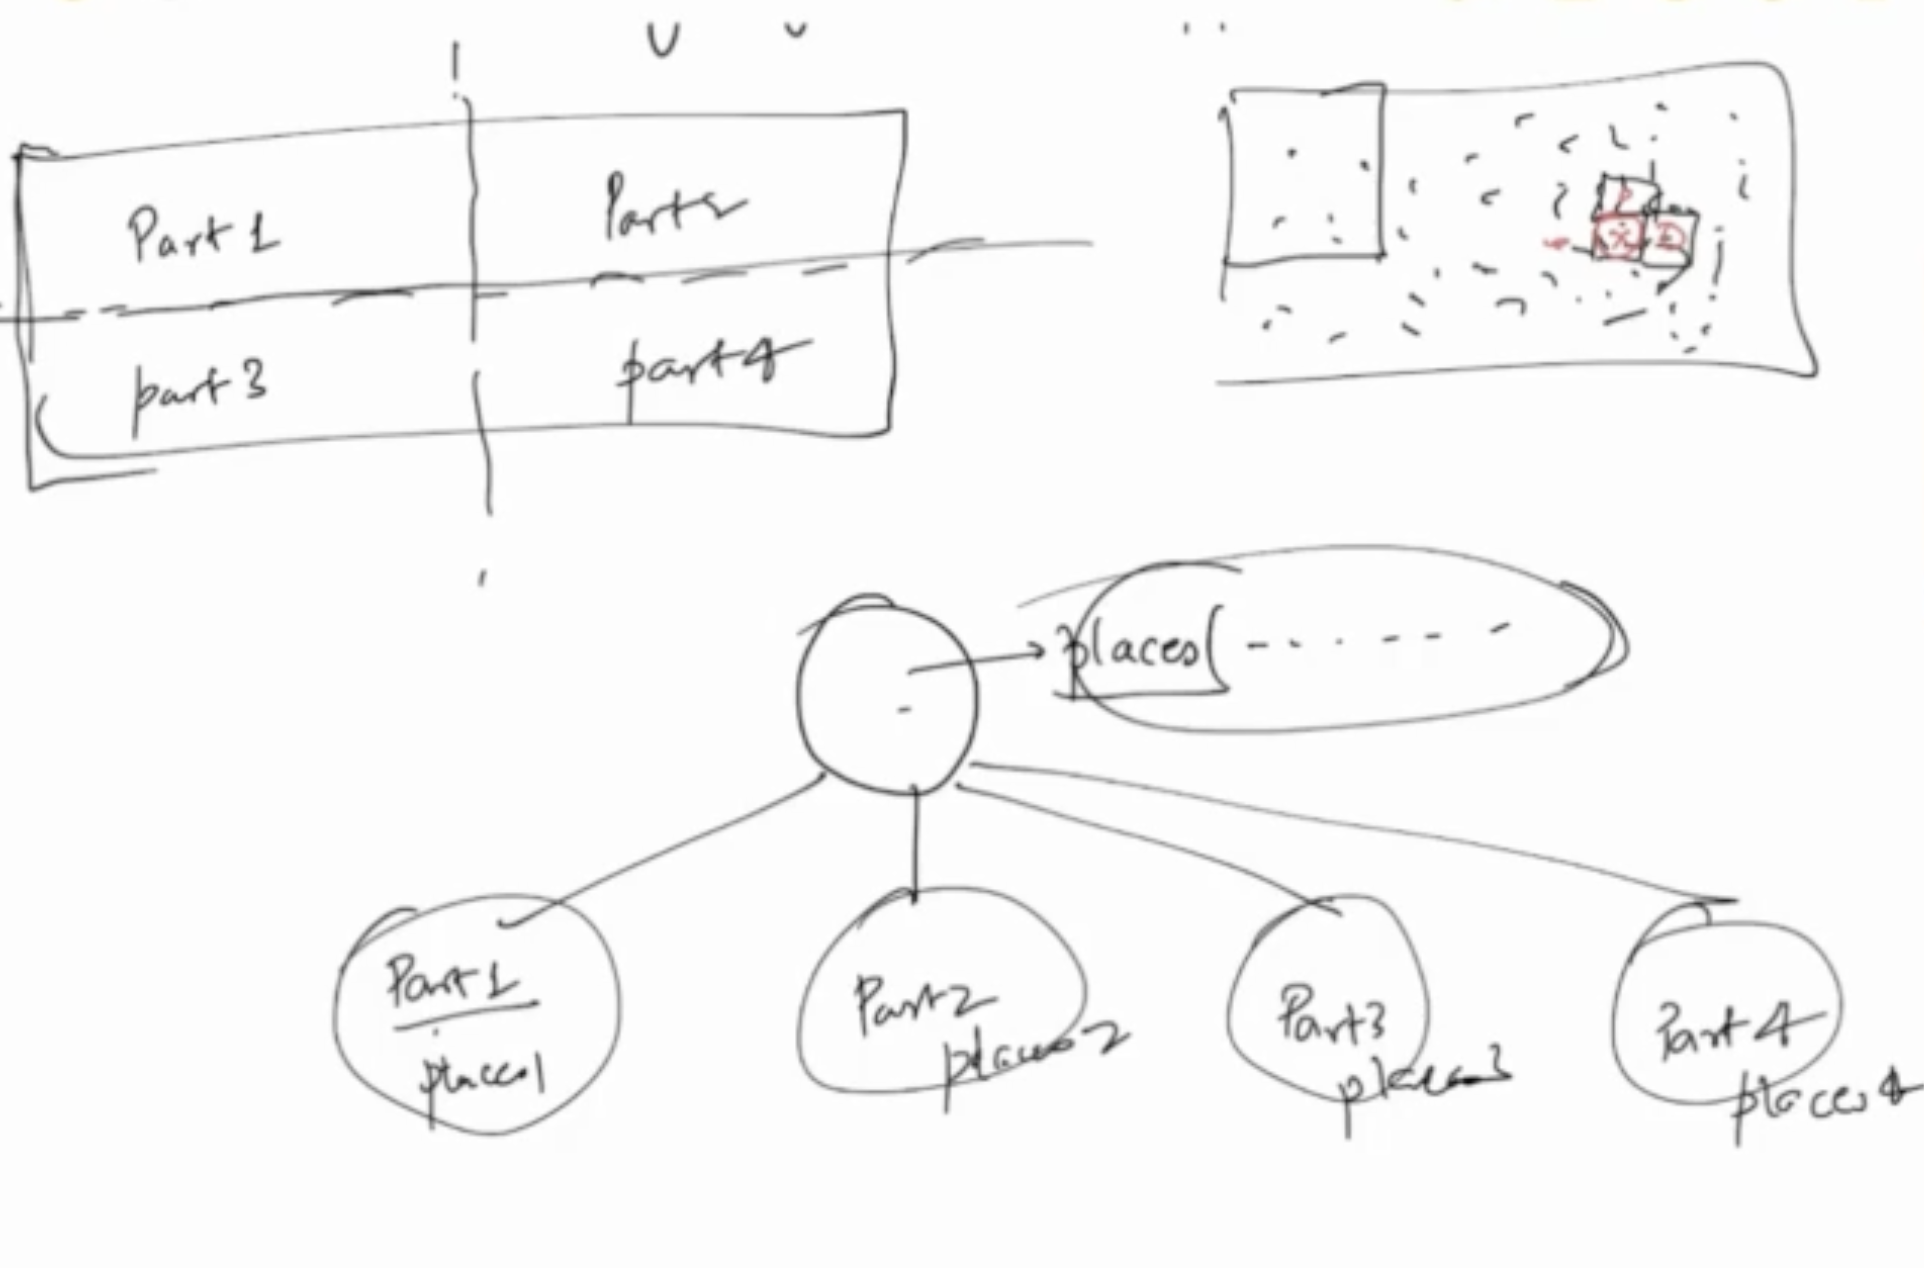 Part 1
Part 2
part 3
part 4
places
Part 1
places1
Part 2
places2
Part 3
places3
Part 4
places4